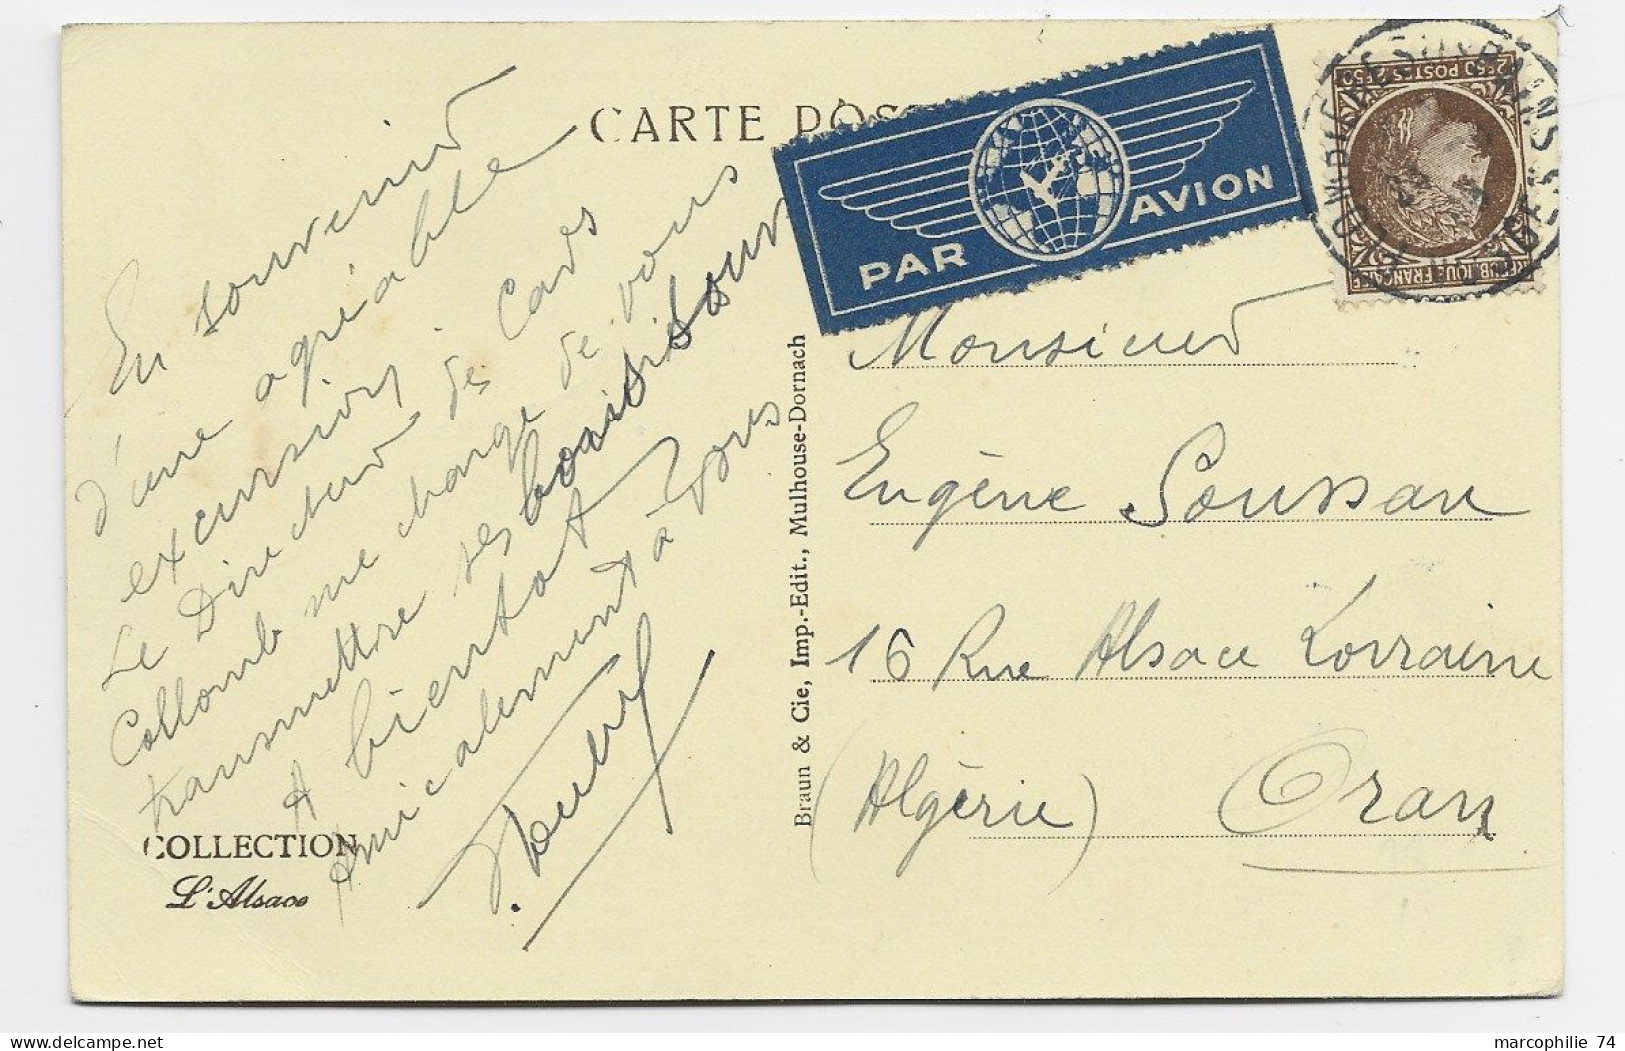 CARTE POS
PAR AVION
2F50 POSTES 2F50
REPUBLIQUE FRANÇAISE
En souvenir
d'une agréable
excursion,
Le Directeur des Cars
Collomb me charge de vous
transmettre ses bons
A bientot
Amicalement à tous
COLLECTION
L'Alsace
Braun & Cie, Imp.-Edit., Mulhouse-Dornach
Monsieur
Eugène Soussan
16 Rue Alsace Lorraine
(Algérie) Oran
marcophilie 74